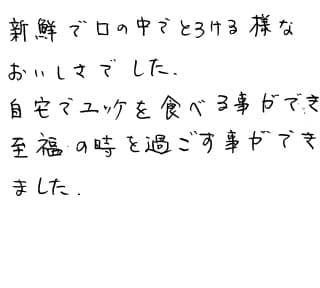 新鮮で口の中でとろける様な
おいしさでした.
自宅でユッケを食べる事ができ
至福の時を過ごす事ができ
ました.